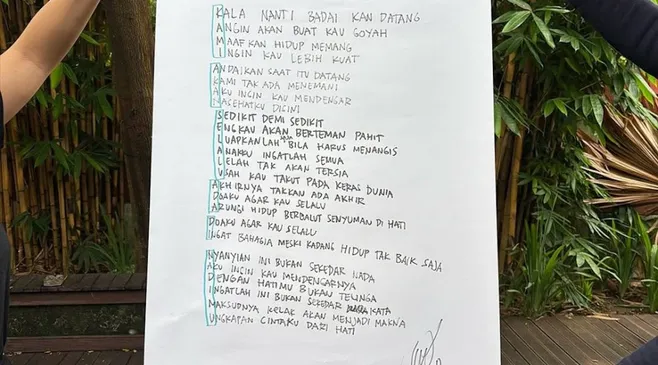 KALA NANTI BADAI KAN DATANG
ANGIN AKAN BUAT KAU GOYAH
MAAFKAN HIDUP MEMANG
INGIN KAU LEBIH KUAT
ANDAIKAN SAAT ITU DATANG
KAMI TAK ADA MENEMANI
AKU INGIN KAU MENDENGAR
NASEHATKU DICINI
SEDIKIT DEMI SEDIKIT
ENGKAU AKAN BERTEMAN PAHIT
LUAPKANLAH SAJA BILA HARUS MENANGIS
ANAKKU INGATLAH SEMUA
LELAH TAK AKAN TERSIA
USAH KAU TAKUT PADA KERAS DUNIA
AKHIRNYA TAKKAN ADA AKHIR
DOAKU AGAR KAU SELALU
ARUNGI HIDUP BERBALUT SENYUMAN DI HATI
DOAKU AGAR KAU SELALU
INGAT BAHAGIA MESKI KADANG HIDUP TAK BAIK SAJA
NYANYIAN INI BUKAN SEKEDAR NADA
AKU INGIN KAU MENDENGARNYA
DENGAN HATIMU BUKAN TELINGA
INGATLAH INI BUKAN SEKEDAR KATA
MAKSUDNYA KELAK AKAN MENJADI MAKNA
UNGKAPAN CINTAKU DARI HATI